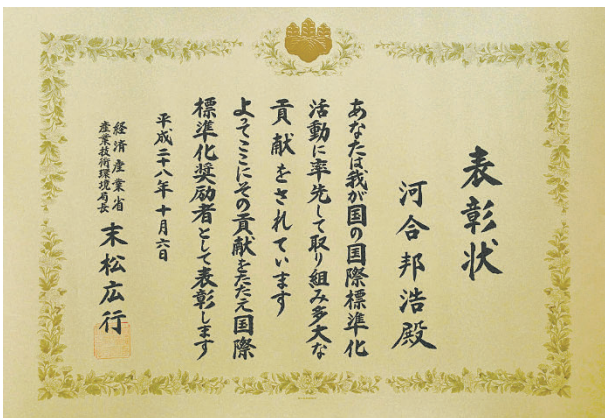 表彰状
河合邦浩殿
あなたは我が国の国際標準化
活動に率先して取り組み多大な
貢献をされています
よってここにその貢献をたたえ国際
標準化奨励者として表彰します
平成二十八年十月六日
経済産業省
産業技術環境局長
末松広行